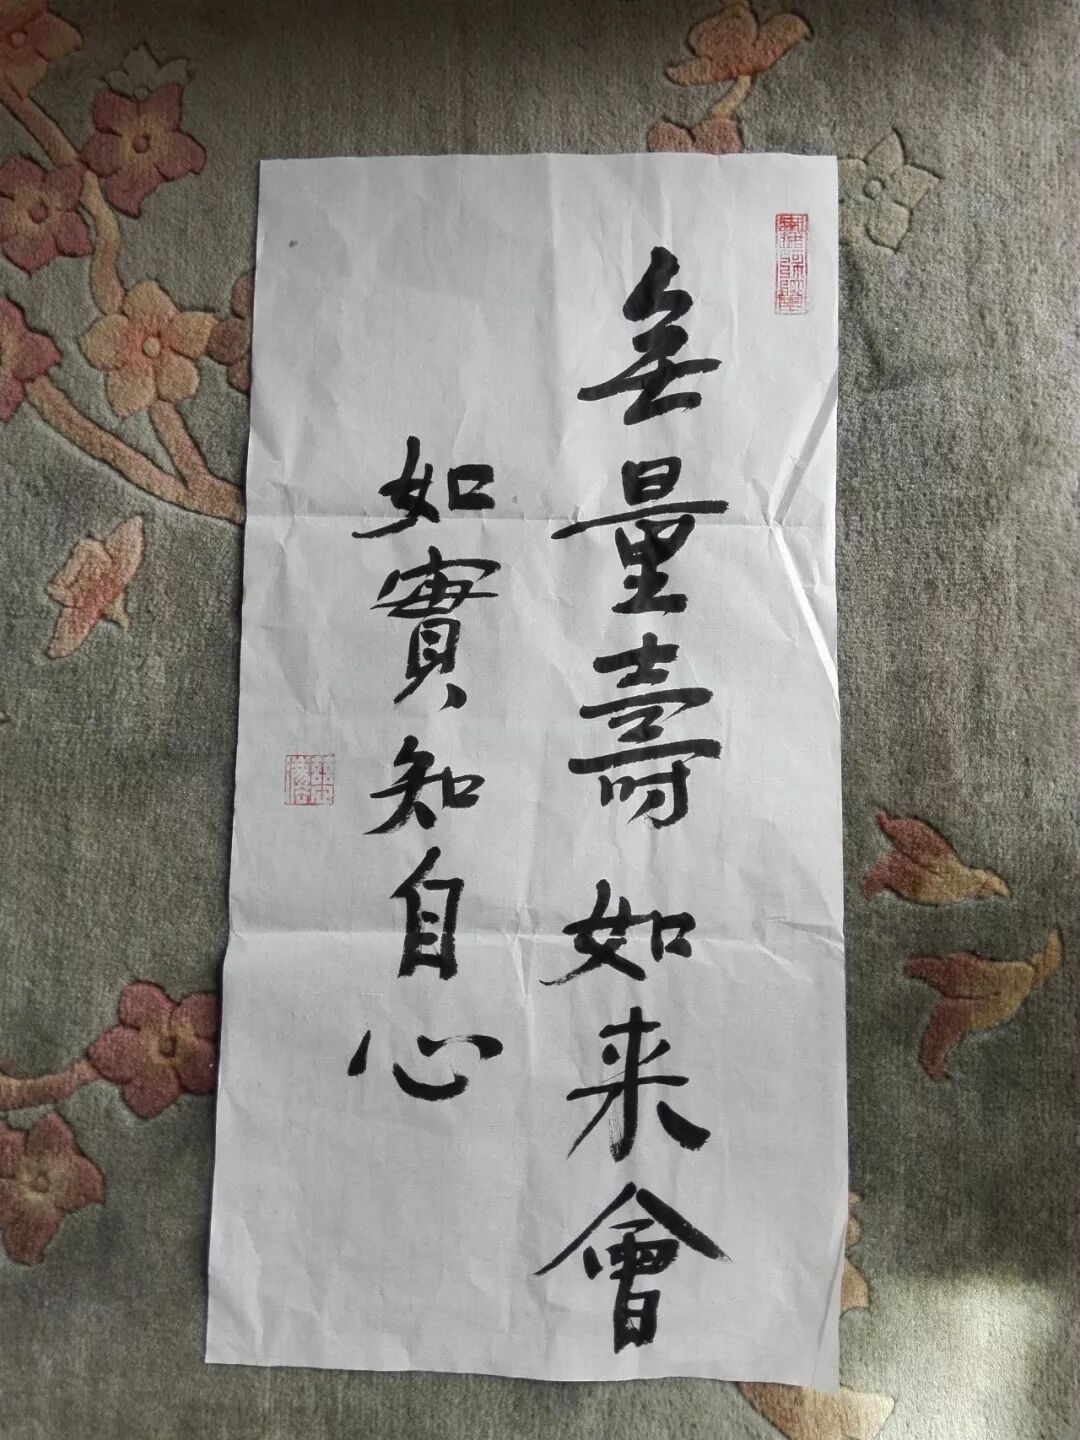 無量壽如来會
如實知自心